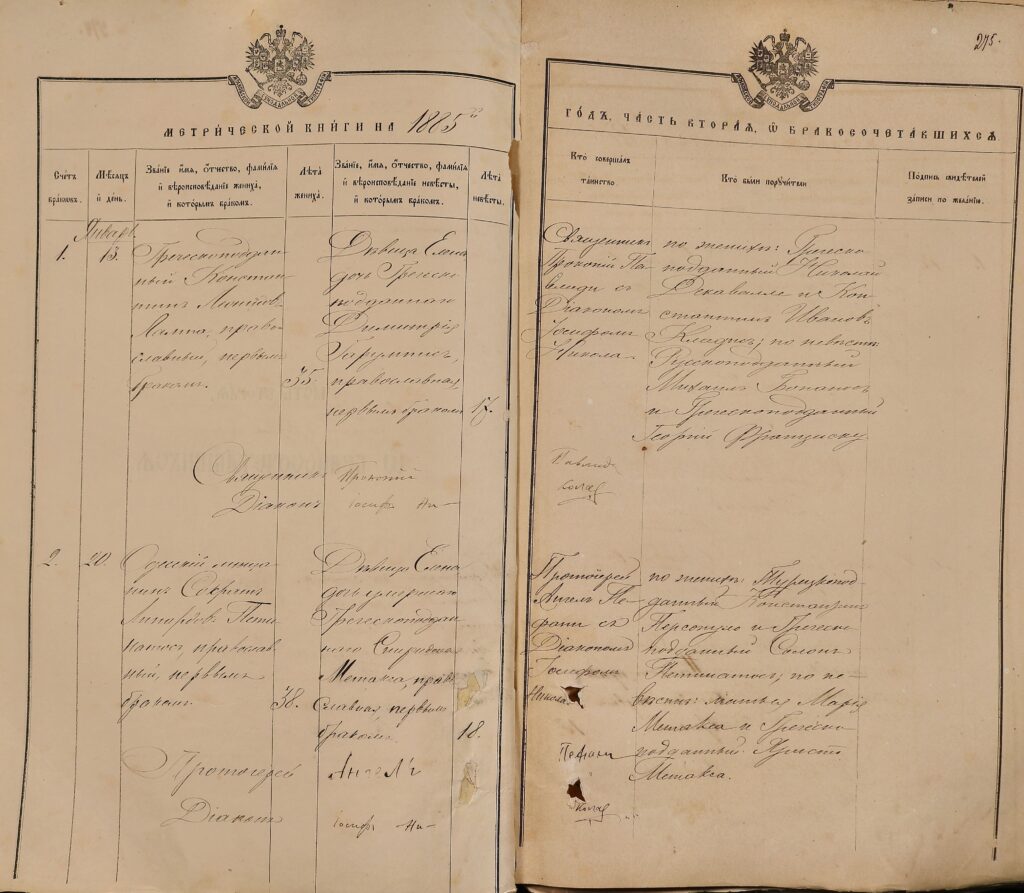 275.
МЕТРИЧЕСКОЙ КНИГИ НА 1885й
ГОДЪ, ЧАСТЬ ВТОРАЯ, Ѿ БРАКОСОЧЕТАВШИХСЯ
Счетъ браковъ.
Мѣсяцъ и день.
Званіе, имя, отчество, фамилія и вѣроисповѣданіе жениха, и которымъ бракомъ.
Лѣта жениха.
Званіе, имя, отчество, фамилія и вѣроисповѣданіе невѣсты, и которымъ бракомъ.
Лѣта невѣсты.
Кто совершалъ таинство.
Кто были поручители
Подпись свидѣтелей записи по желанію.
Январь
1.
13.
Грекоподдан-
ный Констан-
тинъ
право-
славный, первымъ
бракомъ.
35.
Дѣвица Елена
дочь Греческо
подданнаго
Димитрія
православная,
первымъ бракомъ
17.
Священникъ
Прокопій Па-
влиди съ
Діакономъ
Іосифомъ
Никола-
по женихѣ: Греческо
подданный Николай
Декавалле и Кон-
стантинъ Ивановъ
по невѣстѣ
Русскоподданный
Михаилъ
и Грекоподданный
Георгій Франциску
Священникъ Прокопій Павлиди
Діаконъ Іосифъ Ни-колаев
2.
20.
Одесскій мѣща-
нинъ
Пети-
православ-
ный, первымъ
бракомъ.
38.
Дѣвица Елена
дочь умершаго
Грекоподдан-
наго Спиридона
Метакса, право-
славная, первымъ
бракомъ.
18.
Протоіерей
Ангелъ Пе-
фани съ
Діакономъ
Іосифомъ
Никола-
по женихѣ: Турецкопод-
данный Константинъ
Персопуло и Греческо
подданный Солонъ
по не-
вѣстѣ: Марія
Метакса и Греческо
подданный
Метакса.
Протоіерей Ангелъ Пефани
Діаконъ Іосифъ Ни-колаев